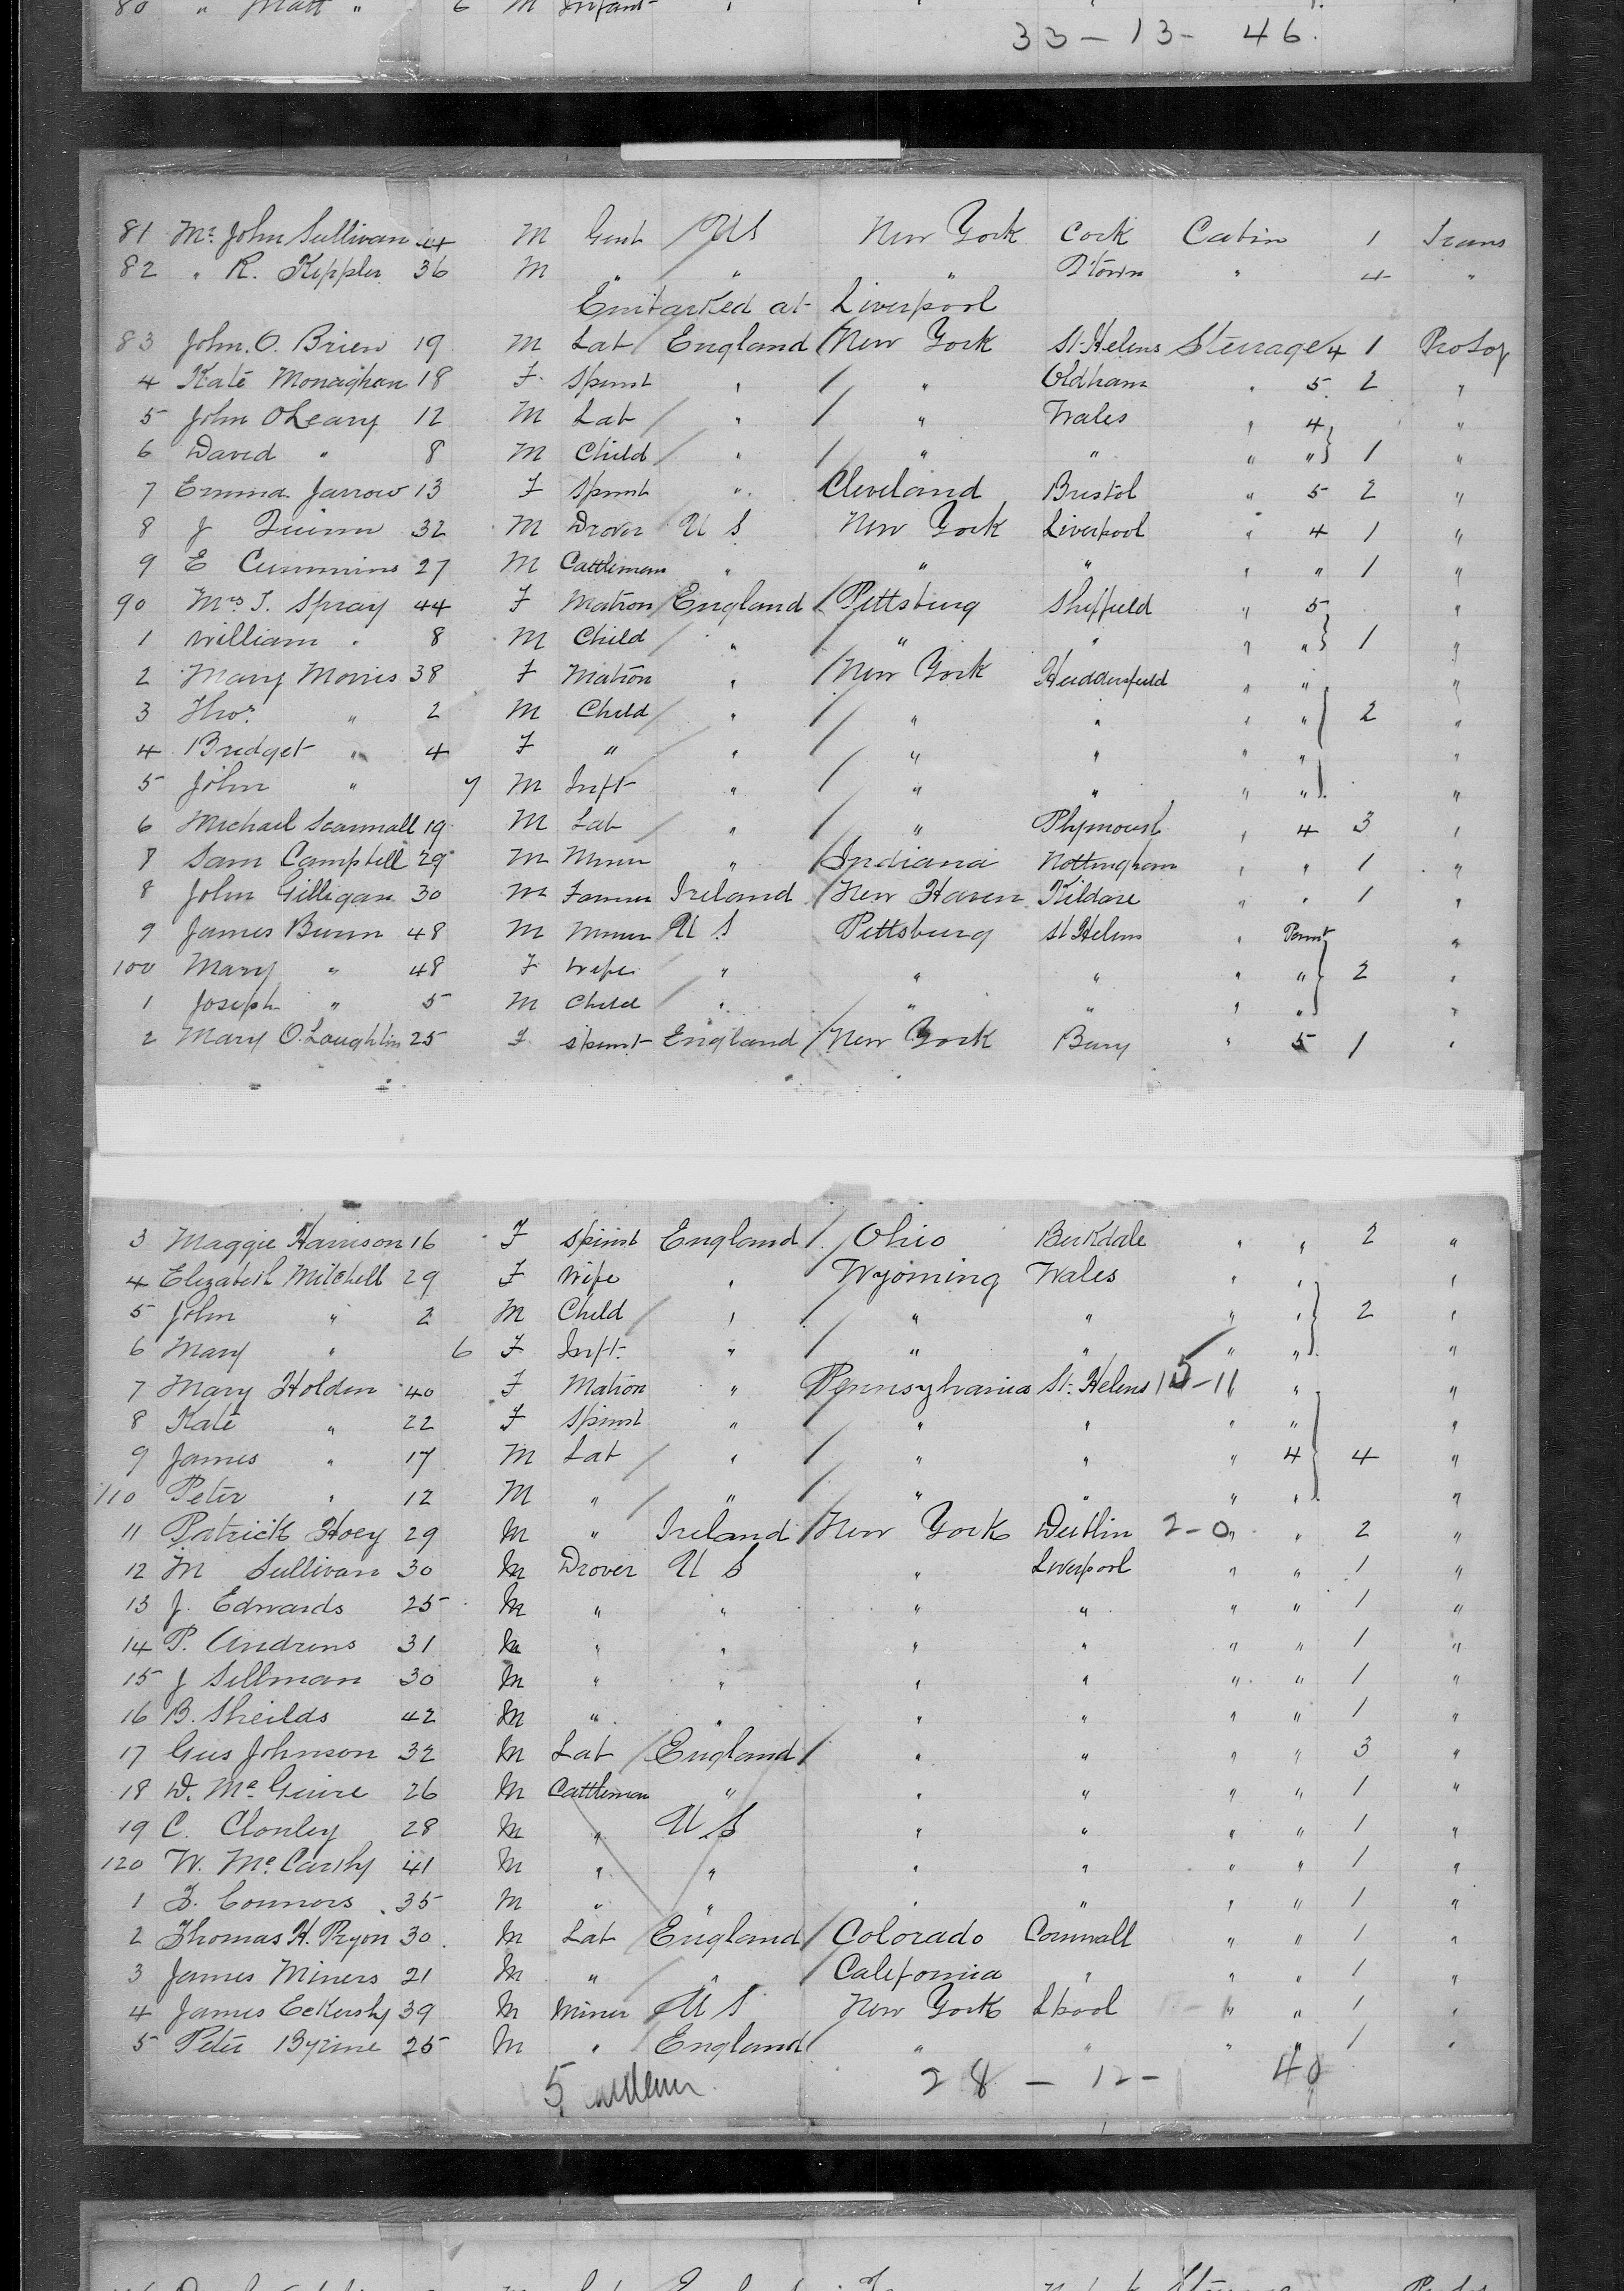 80 " Matt " 6 M Infant
33 - 13 - 46.
81 Mr. John Sullivan 44 M Gent US New York Cork Cabin 1 Trans
82 " R. Keppler 36 M " " " Qtown " 4 "
Embarked at Liverpool
83 John O. Brien 19 M Lab England New York St. Helens Steerage 4 1 ProSoj
4 Kate Monaghan 18 F Spinst " " Oldham " 5 2 "
5 John OLeary 12 M Lab " " Wales " 4 "
6 David " 8 M Child " " " " " 1 "
7 Emma Jarrow 13 F Spinst " Cleveland Bristol " 5 2 "
8 J Quinn 32 M Drover U S New York Liverpool " 4 1 "
9 E Cummins 27 M Cattleman " " " " " 1 "
90 Mrs J. Spray 44 F Matron England Pittsburg Sheffield " 5 "
1 William " 8 M Child " " " " " 1 "
2 Mary Morris 38 F Matron " New York Huddersfield " " "
3 Thos. " 2 M Child " " " " " 2 "
4 Bridget " 4 F " " " " " " "
5 John " 7 M Inft " " " " " "
6 Michael Scannall 19 M Lab " " Plymouth " 4 3 "
7 Sam Campbell 29 M Miner " Indiana Nottingham " " 1 "
8 John Gilligan 30 M Farmer Ireland New Haven Kildare " " 1 "
9 James Bunn 48 M Miner U S Pittsburg St Helens " "
100 Mary " 48 F Wife " " " " " 2 "
1 Joseph " 5 M Child " " " " " "
2 Mary O. Loughlin 25 F Spinst England New York Bury " 5 1 "
3 Maggie Harrison 16 F Spinst England Ohio Birkdale " " 2 "
4 Elizabeth Mitchell 29 F Wife " Wyoming Wales " " "
5 John " 2 M Child " " " " " 2 "
6 Mary " 6 F Inft. " " " " " "
7 Mary Holden 40 F Matron " Pennsylvania St. Helens 15-11 " "
8 Kate " 22 F Spinst " " " " " "
9 James " 17 M Lab " " " " 4 4 "
110 Peter " 12 M " " " " " " "
11 Patrick Hoey 29 M " Ireland New York Dublin 2-0 " " 2 "
12 M Sullivan 30 M Drover U S " Liverpool " " 1 "
13 J. Edwards 25 M " " " " " " 1 "
14 P. Andrews 31 M " " " " " " 1 "
15 J Sillman 30 M " " " " " " 1 "
16 B. Sheilds 42 M " " " " " " 1 "
17 Gus Johnson 32 M Lab England " " " " 3 "
18 D. McGuire 26 M Cattleman " " " " " 1 "
19 C. Clonley 28 M " U S " " " " 1 "
120 W. McCarthy 41 M " " " " " " 1 "
1 F. Connors 35 M " " " " " " 1 "
2 Thomas H. Pryon 30 M Lab England Colorado Cornwall " " 1 "
3 James Miners 21 M " " California " " " 1 "
4 James Eckersly 39 M Miner U S New York Lpool " " 1 "
5 Peter Byrne 25 M " England " " " " 1 "
5 28 - 12 - 40